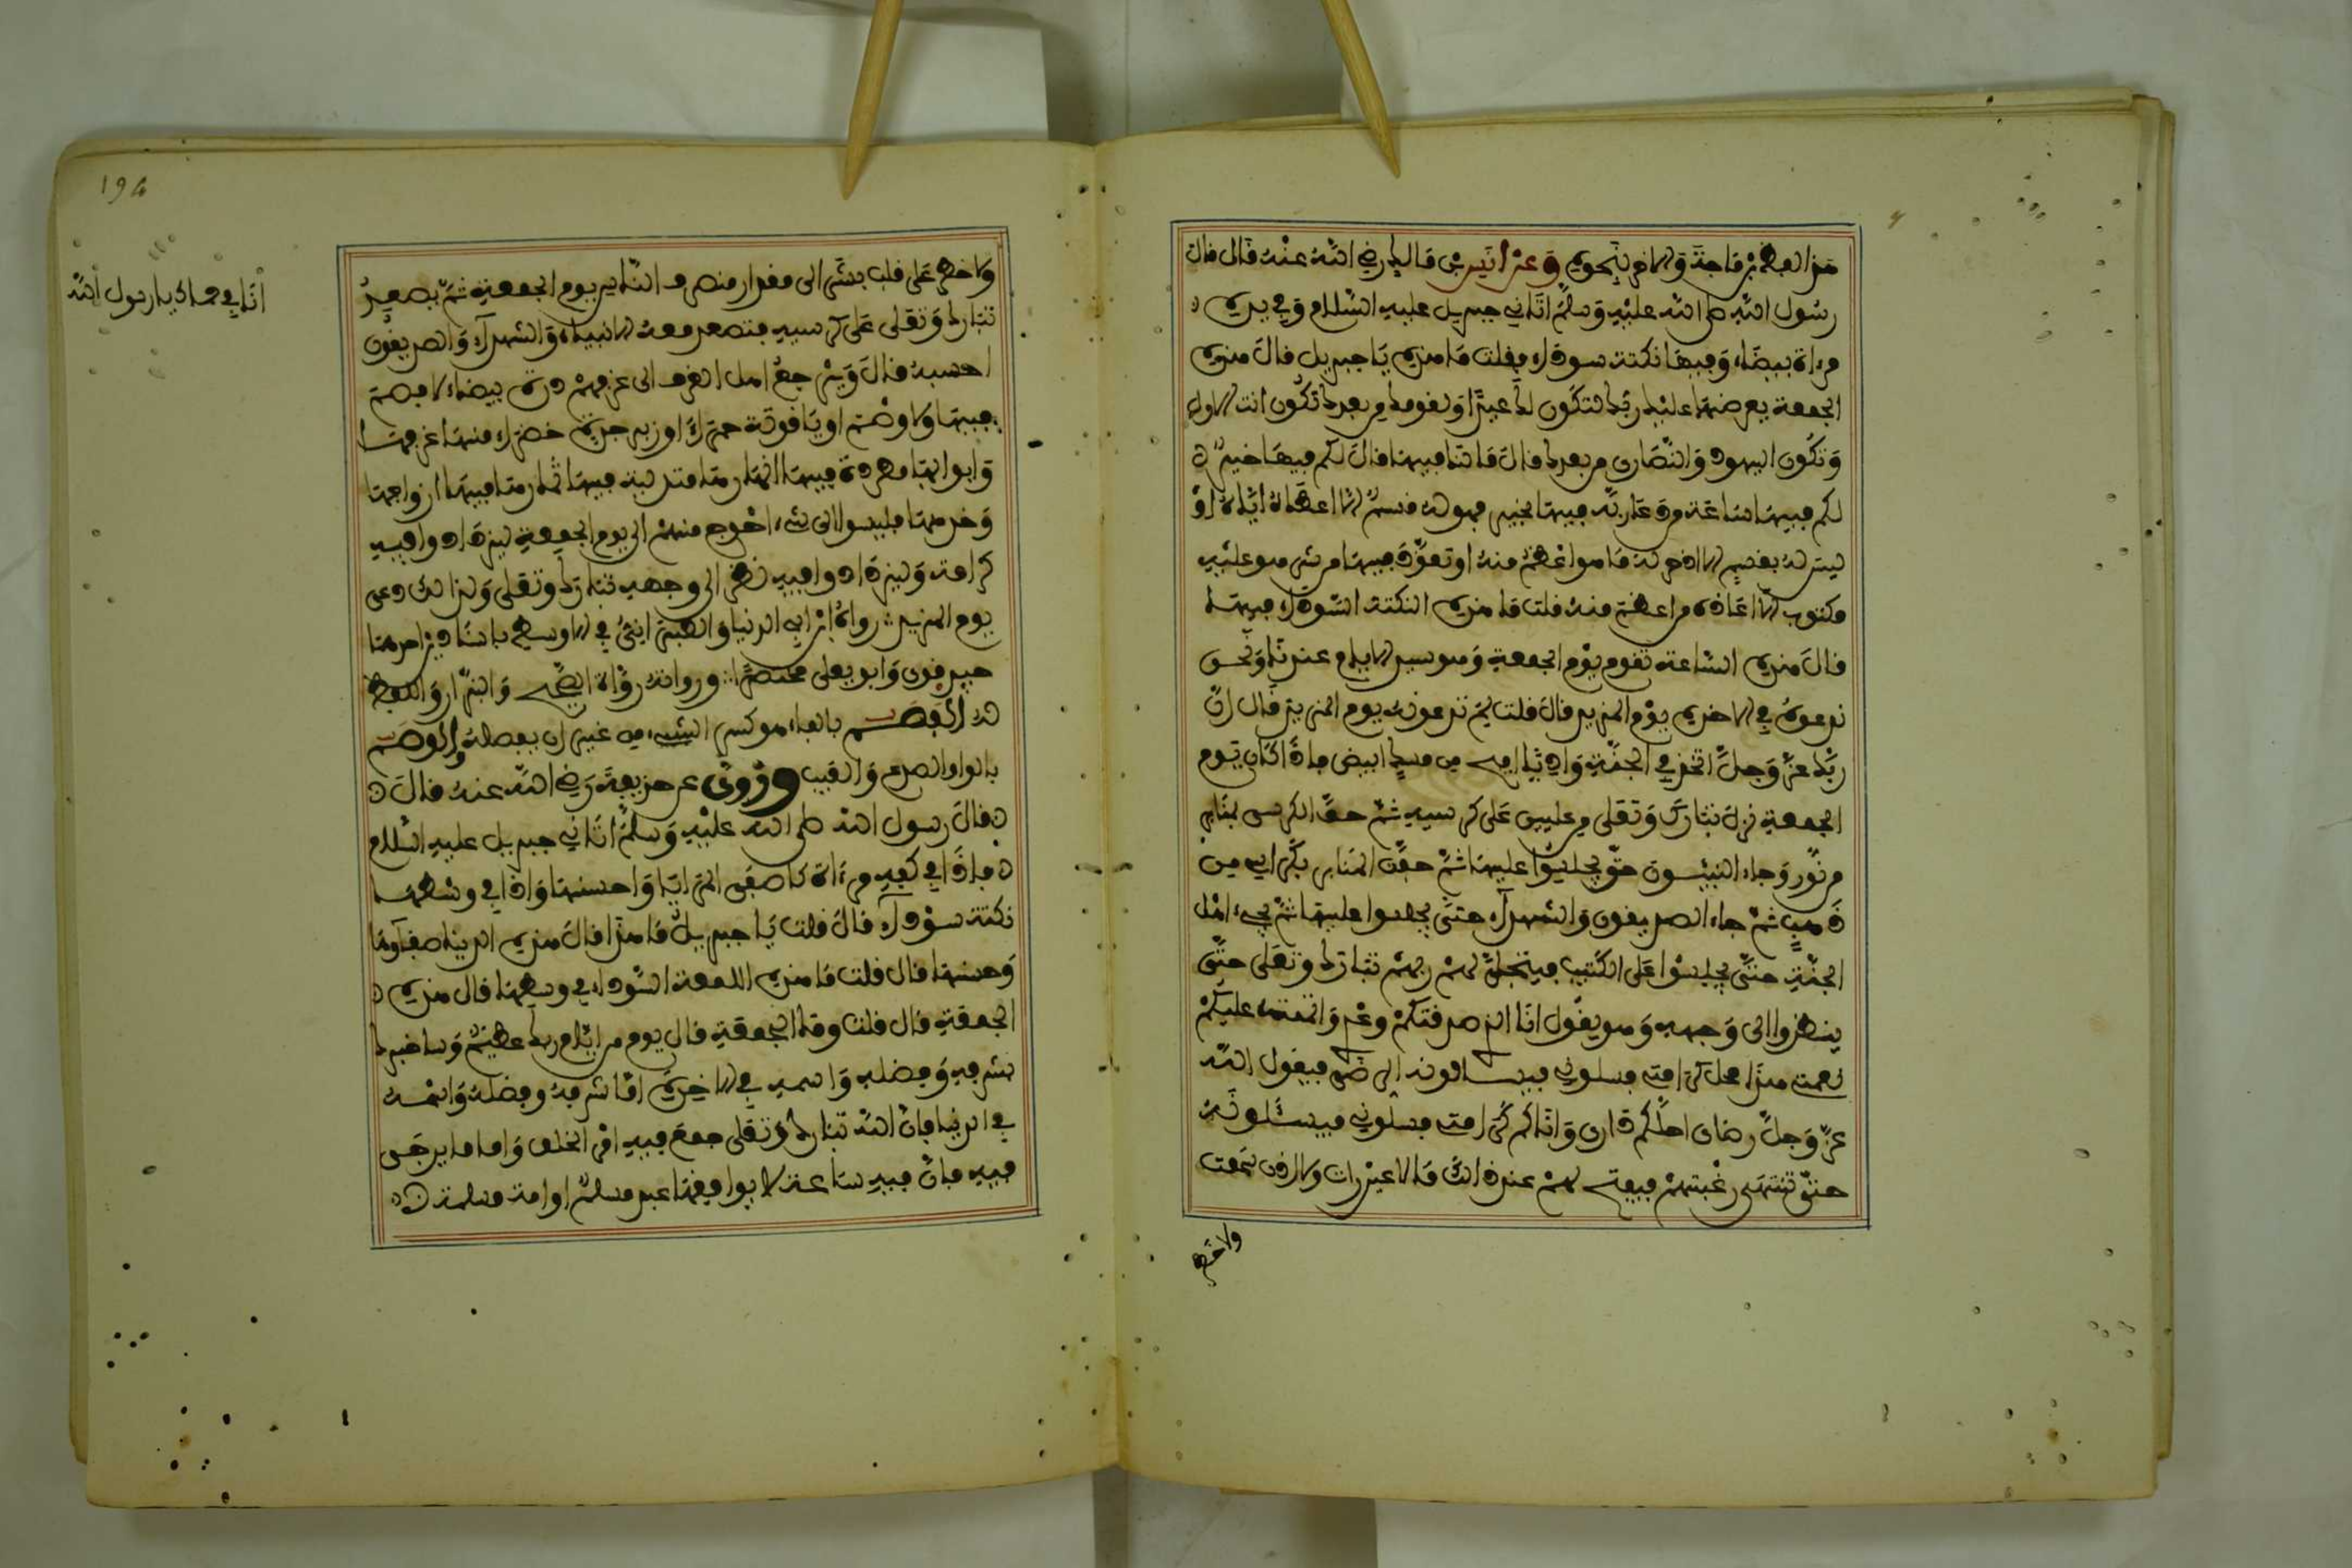 هذا الفطر بن ماجة والاخر بنحوه وعن انس بن مالك رضي الله عنه قال قال
رسول الله صلى الله عليه وسلم اتاني جبريل عليه السلام وفي يده
مرءاة بيضاء وفيها نكتة سوداء فقلت ما هذه يا جبريل قال هذه
الجمعة يعرضها عليك ربك لتكون لك عيدا ولقومك من بعدك تكون انت الاول
وتكون اليهود والنصارى من بعدك قال ما لنا فيها قال لكم فيها خير
لكم فيها ساعة من دعا ربه فيها بخير هو له قسم الا اعطاه اياه او
ليس له بقسم الا ادخر له ما هو اعظم منه او تعوذ فيها من شر هو عليه
مكتوب الا اعاذه من اعظم منه قلت ما هذه النكتة السوداء فيها
قال هذه الساعة تقوم يوم الجمعة وهو سيد الايام عندنا ونحن
ندعوه في الاخرة يوم المزيد قال قلت لم تدعونه يوم المزيد قال ان
ربك عز وجل اتخذ في الجنة واديا افيح من مسك ابيض فاذا كان يوم
الجمعة نزل تبارك وتعلى من عليين على كرسيه ثم حف الكرسي بمنابر
من نور وجاء النبيئون حتى يجلسوا عليها ثم حف المنابر بكراسي من
ذهب ثم جاء الصديقون والشهداء حتى يجلسوا عليها ثم يجيء اهل
الجنة حتى يجلسوا على الكثيب فيتجلى لهم ربهم تبارك وتعلى حتى
ينظروا الى وجهه وهو يقول انا الذي صدقتكم وعدي واتممت عليكم
نعمتي هذا محل كرامتي فسلوني فيسالونه الرضى فيقول الله
عز وجل رضاي احلكم داري وانالكم كرامتي فسلوني فيسئلونه
حتى تنتهي رغبتهم فيفتح لهم عند ذلك ما لا عين رات ولا اذن سمعت
ولا خطر
194
ولا خطر على قلب بشر الى مقدار منصرف الناس يوم الجمعة ثم يصعد
تبارك وتعلى على كرسيه فتصعد معه الانبياء والشهداء والصديقون
احسبه قال ويرجع اهل الغرف الى غرفهم درة بيضاء لا فصم
فيها ولا وصم او ياقوتة حمراء او زبرجدة خضراء منها غرفها
وابوابها مطردة فيها انهارها متدلية فيها ثمارها فيها ازواجها
وخدمها فليسوا الى شيء احوج منهم الى يوم الجمعة ليزدادوا فيه
كرامة وليزدادوا فيه نظرا الى وجهه تبارك وتعلى ولذلك دعي
يوم المزيد رواه ابن ابي الدنيا والطبراني في الاوسط باسنادين احدهما
جيد قوي وابو يعلى مختصرا ورواته رواة الصحيح والبزار واللفظ
له الفصم بالفاء هو كسر الشيء من غير ان يفصله والوصم
بالواو الصدع والعيب وروي عن حذيفة رضي الله عنه قال
قال رسول الله صلى الله عليه وسلم اتاني جبريل عليه السلام
فاذا في كفه مرءاة كاصفى المرايا واحسنها واذا في وسطها
نكتة سوداء قال قلت يا جبريل ما هذا قال هذه الدنيا صفاؤها
وحسنها قال قلت ما هذه اللمعة السوداء في وسطها قال هذه
الجمعة قال قلت وما الجمعة قال يوم من ايام ربك عظيم وساخبرك
بشرفه وفضله واسمه في الاخرة اما شرفه وفضله واسمه
في الدنيا فان الله تبارك وتعلى جمع فيه امر الخلق واما ما يرجى
فيه فان فيه ساعة لا يوافقها عبد مسلم او امة مسلمة